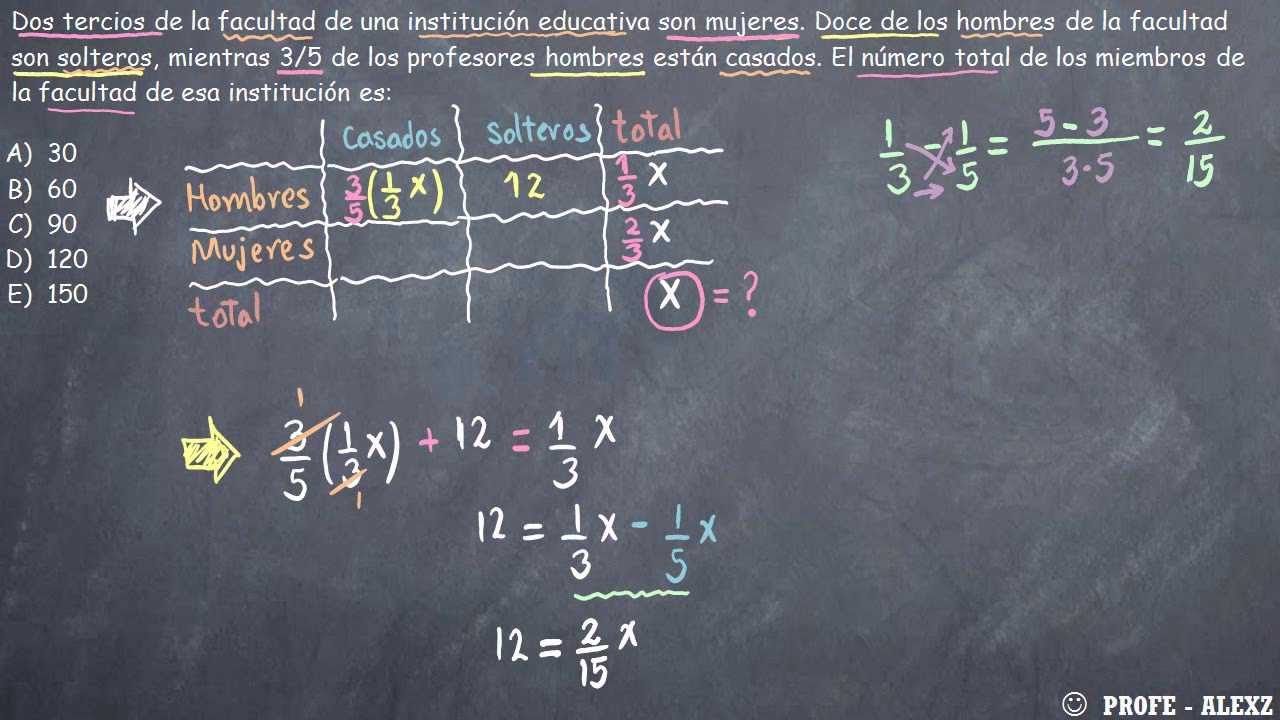 Dos tercios de la facultad de una institución educativa son mujeres. Doce de los hombres de la facultad
son solteros, mientras 3/5 de los profesores hombres están casados. El número total de los miembros de
la facultad de esa institución es:
A) 30
B) 60
C) 90
D) 120
E) 150
Casados solteros total
Hombres 3/5 (1/3 x) 12 1/3 x
Mujeres 2/3 x
total x = ?
1/3 - 1/5 = 5 - 3 / 3·5 = 2/15
1
3/5 (1/3 x) + 12 = 1/3 x
1
12 = 1/3 x - 1/5 x
12 = 2/15 x
PROFE - ALEXZ